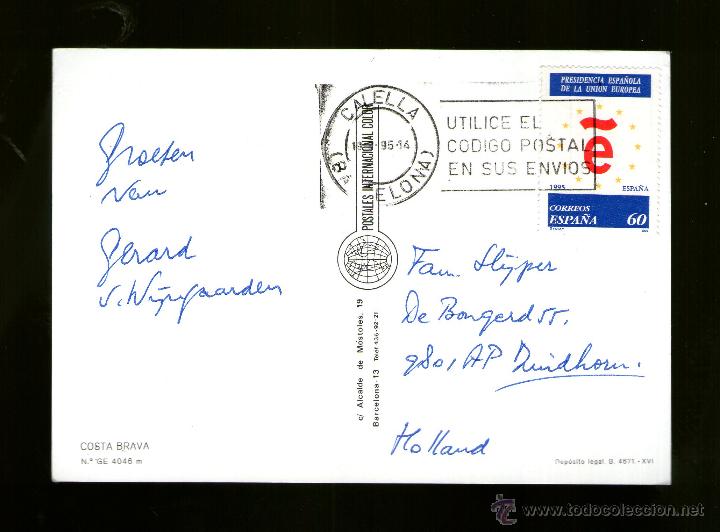 Groeten
van
Gerard
v. Wijngaarden
COSTA BRAVA
N.º GE 4046 m
POSTALES INTERNACIONAL COLOR
c/ Alcalde de Móstoles, 19
Barcelona-13 Telef. 436-92-21
CALELLA
95-14
(BA ELONA)
UTILICE EL
CODIGO POSTAL
EN SUS ENVIOS
PRESIDENCIA ESPAÑOLA
DE LA UNION EUROPEA
ẽ
1995 ESPAÑA
CORREOS
ESPAÑA 60
Fam. Slijper
De Bongerd 55,
9801 AP Zuidhorn.
Holland
Depósito legal. B. 4671.-XVI
www.todocoleccion.net